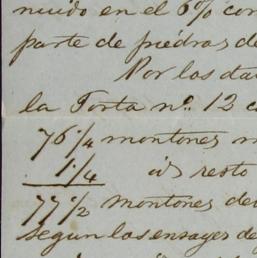 nuido en el 6% con
parte de piedras de
Por los da
la Torta nº 12 c
76 1/4 montones m
1 1/4 id resto
77 1/2 montones de
segun los ensayes de